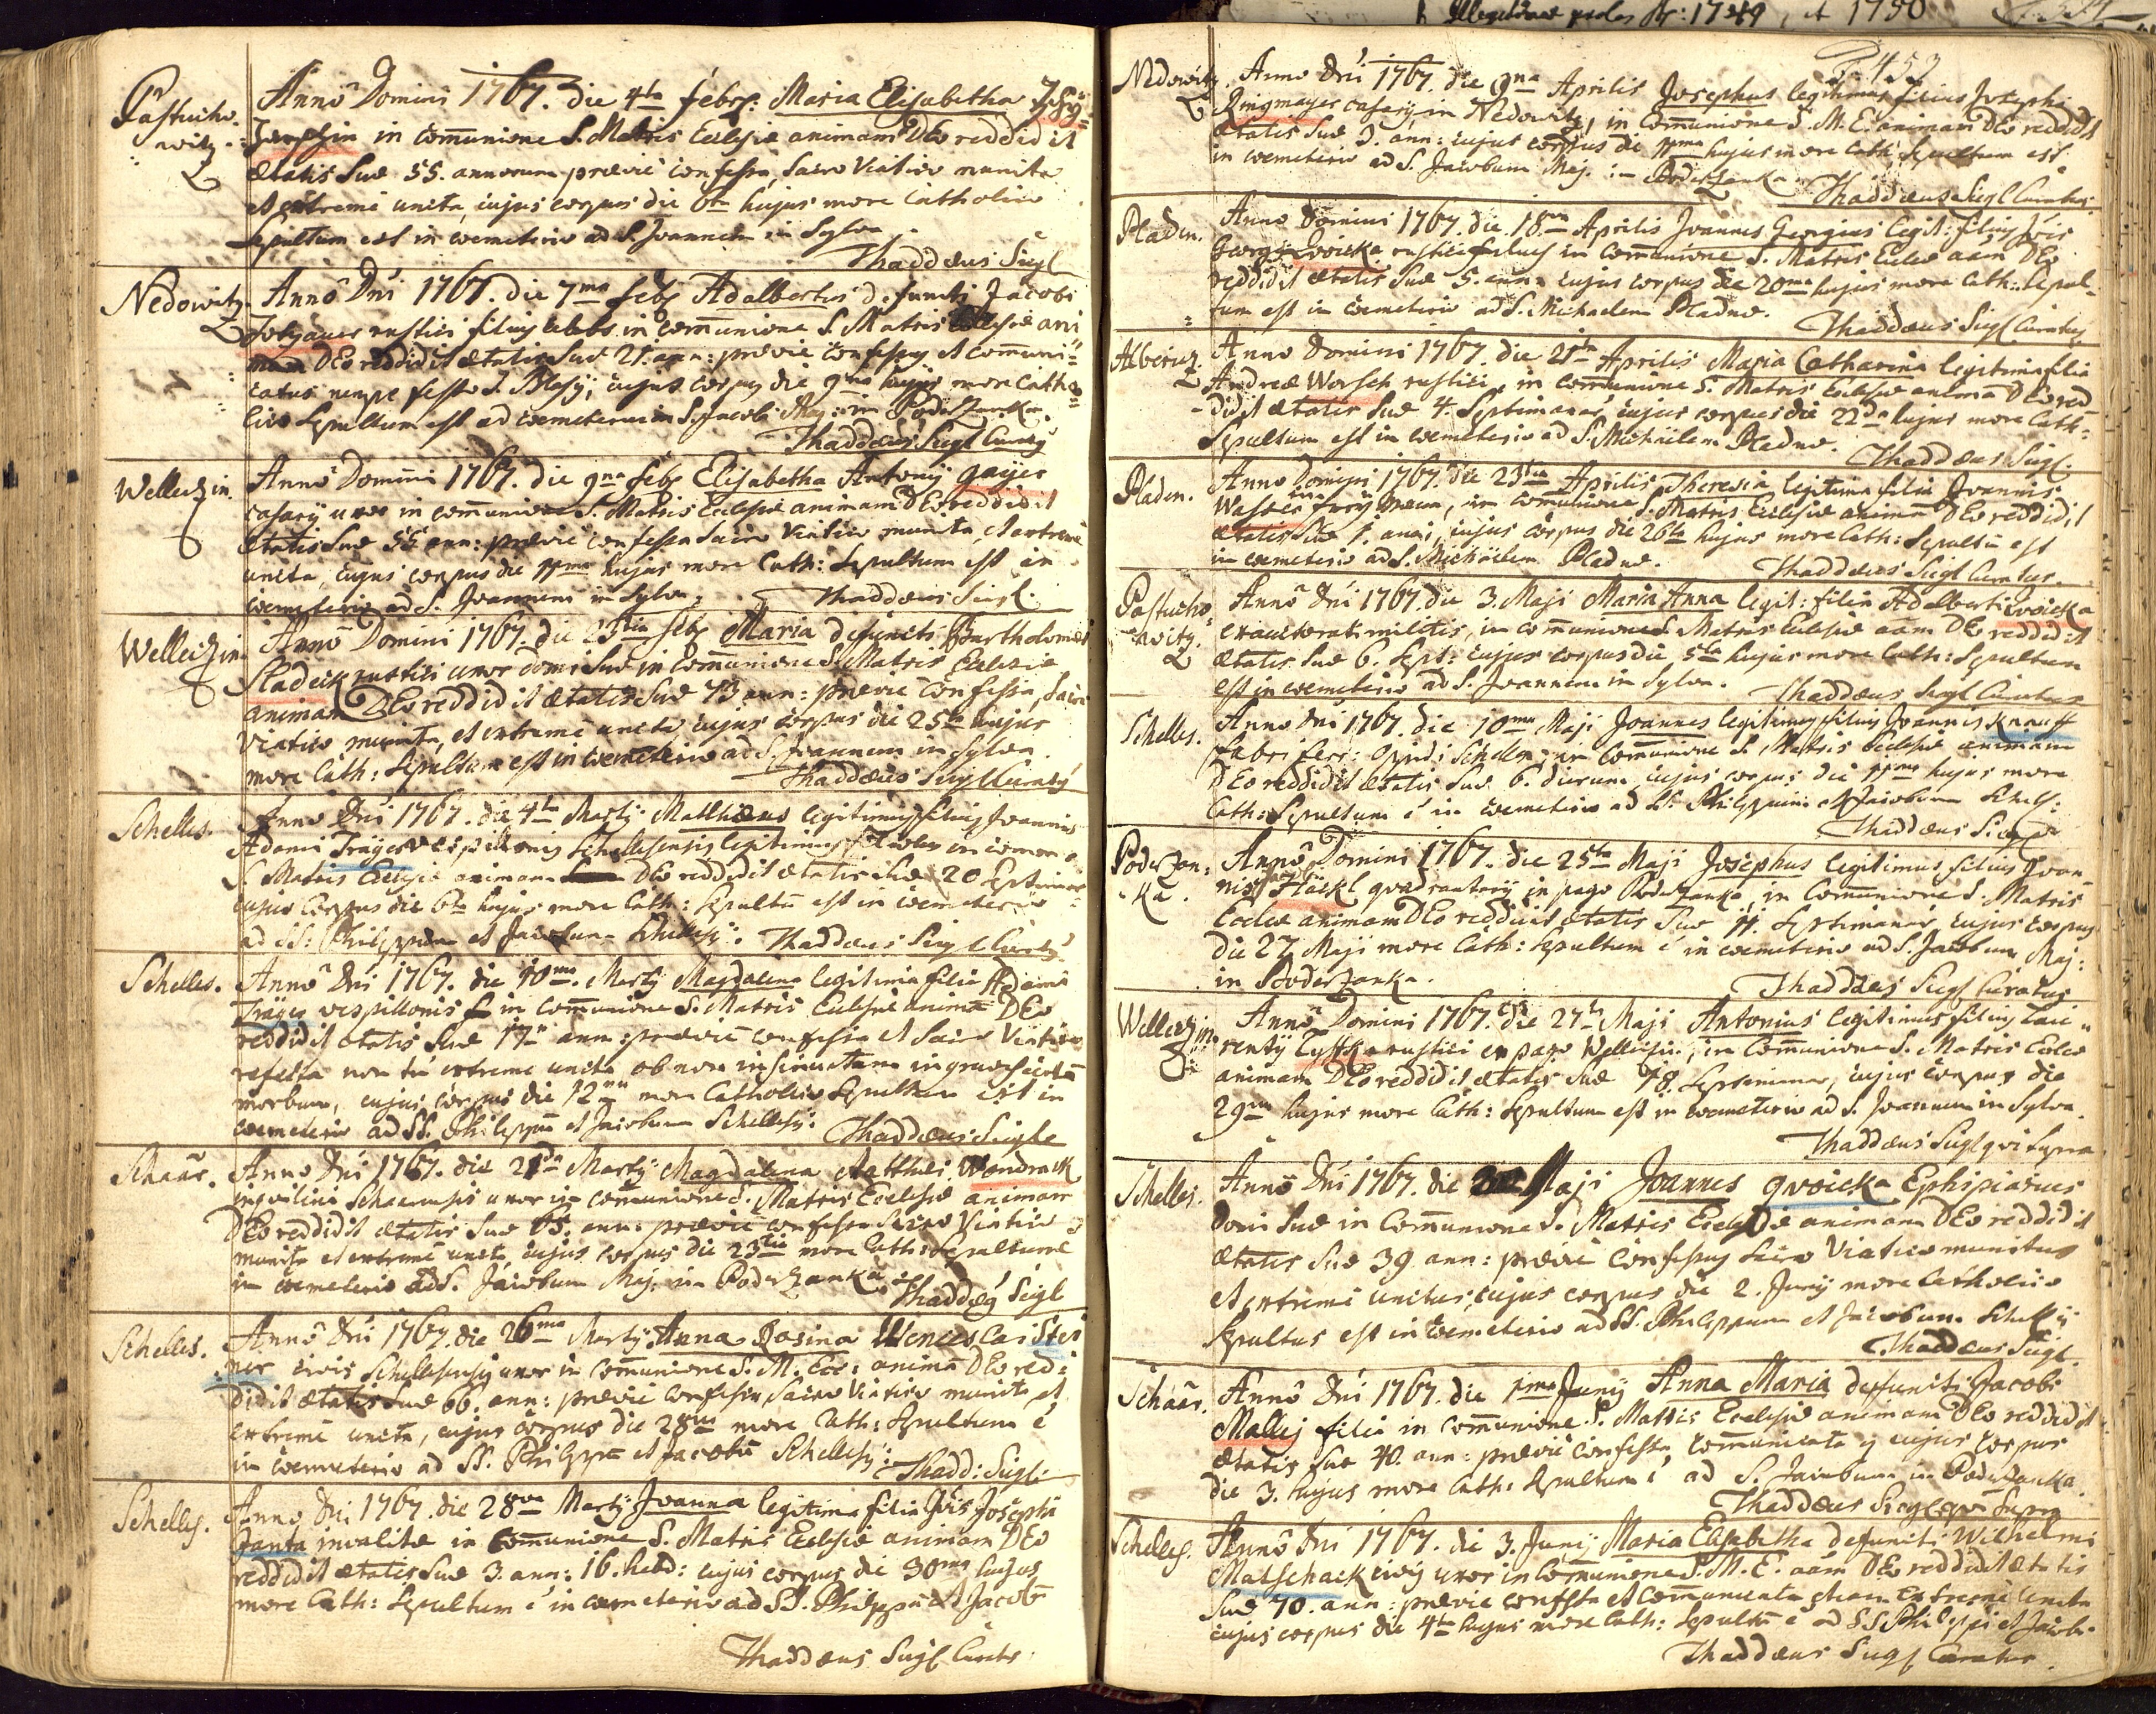 Pastucho-
witz.
Anno Domini 1767. die 4ta febr: Maria Elisabetha
in comunione S. Matris Ecclesiæ animam DEo reddidit
ætatis Suæ 55. annorum prævie confessa, Sacro Viatico munita
et extreme uncta, cujus corpus die 6ta hujus more Catholico
Sepultum est in coemeterio ad S. Joannem in Sylva.
Thaddæus Siegl
Nedowitz.
Anno Dni 1767. die 7ma feb Adalbertus defuncti Jacobi
rustici filius in comunione S. Matris Ecclesiæ ani
mam DEo reddidit ætatis Suæ 21. ann: prævie confessus et comuni-
catus nempe festo S. Blasij, cujus corpus die 9na hujus more Catho-
lico Sepultum est ad coemeterium S. Jacobi Maj: in Poderzanka.
Thaddæus Siegl Curatus
Welletzin.
Anno Domini 1767. die 9na feb Elisabetha Antonij gayer
casarij uxor in comunione S. Matris Ecclesiæ animam DEo reddidit
ætatis Suæ 55 ann: prævie confessa Sacro Viatico munita, et extreme
uncta, cujus corpus die 11ma hujus more Cath: Sepultum est in
coemeterio ad S. Joannem in Sylva. Thaddæus Siegl.
Welletzin
Anno Domini 1767. die 23tia feb Maria defuncti Bartholomæi
Sladeck rustici uxor domi Suæ in Comunione S. Matris Ecclesiæ
animam DEo reddidit ætatis Suæ 73 ann: prævie confessa, Sacro
Viatico munita, et extreme uncta, cujus corpus die 25ta hujus
more Cath: Sepultum est in coemeterio ad S. Joannem in Sylva
Thaddæus Siegl Curatus
Schelles.
Anno Dni 1767. die 4ta Martij Matthæus legitimus filius Joannis
Adami Träger vespillonis Schellesensis legitimus in comun
S. Matris Ecclesiæ animam DEo reddidit ætatis Suæ 20 Septiman
cujus Corpus die 6ta hujus more Cath: Sepultu est in coemeterio
ad SS: Philippum et Jacobum Schellesij. Thaddæus Siegl Curatus
Schelles.
Anno Dni 1767. die 10ma. Martij Magdalena legitima filia Adami
Träger vespillonis in comunione S. Matris Ecclesiæ anima DEo
reddidit ætatis Suæ 17 ann: prævie confessa et Sacro Viatico
refecta non tn extreme uncta ob non
morbum, cujus corpus die 12ma more Catholico Sepultum est in
coemeterio ad SS. Philippu et Jacobum Schellesij. Thaddæus Siegle
Schaar.
Anno Dni 1767. die 21 Martij Magdalena Matthiæ Wondrack
inquilini Schaarensis uxor in comunione S. Matris Ecclesiæ animam
DEo reddidit ætatis Suæ 65. ann: prævie confessa Sacro Viatico
munita et extreme uncta, cujus corpus die 23tia more Cath: Sepultum e
in coemeterio ad S. Jacobum Maj. in Poderzanka. Thaddæus Siegl
Schelles.
Anno Dni 1767. die 26ma Martij Anna Rosina Wenceslai Stei
ner civis Schellesensis uxor in comunione S. M. Ecc: anima DEo red-
didit ætatis Suæ 66. ann: prævie confessa, Sacro Viatico munita, et
extreme uncta, cujus corpus die 28va more Cath: Sepultum e
in coemeterio ad SS. Philippu et Jacobu Schellesij. Thadd: Siegl
Schelles.
Anno Dni 1767. die 28va Martij Joanna legitima filia Josephi
Janta invalidæ in Comunione S. Matris Ecclesiæ animam DEo
reddidit ætatis Suæ 3. ann: 16. hebd: cujus corpus die 30ma hujus
more Cath: Sepultum e in coemeterio ad SS. Philippu et Jacob
Thaddæus Siegl Curatus.
1749, et 1750
453
Nedowitz
Anno Dni 1767. die 9na Aprilis Josephus legitimus filius Josephi
Ringmayer casarij in Nedowitz, in Comunione S. M. E. animam DEo reddidit
ætatis Suæ 3. ann: cujus corpus die 11ma hujus more Cath: Sepultum est
in coemeterio ad S. Jacobum Maj. in Poderzanka.
Thaddæus Siegl Curatus
Pladen.
Anno Domini 1767. die 18va Aprilis Joannes Georgius legit: filius
Georgij rustici in comunione S. Matris Ecclæ aam DEo
reddidit ætatis Suæ 5. ann: cujus corpus die 20ma hujus more Cath: Sepul-
tum est in coemeterio ad S. Michaelem Pladnæ. Thaddæus Siegl Curatus
Alberitz
Anno Domini 1767. die 21 Aprilis Maria Catharina legitima filia
Andreæ Worsch rustici, in comunione S. Matris Ecclesiæ anima DEo red
didit ætatis Suæ 4. Septimanar, cujus corpus die 22da hujus more Cath:
Sepultum est in coemeterio ad S. Michaelem Pladnæ. Thaddæus Siegl.
Pladen.
Anno Domini 1767. die 23tia Aprilis Theresia legitima filia Joannis
in comunione S. Matris Ecclesiæ anima DEo reddidit
ætatis Suæ 1. anni, cujus corpus die 26ta hujus more Cath: Sepultu est
in coemeterio ad S. Michaelem Pladnæ. Thaddæus Siegl Curatus.
Pastucho-
witz.
Anno Dni 1767. die 3. Maji Maria Anna legit: filia Adalberti woicka
exauctorati militis, in comunione S. Matris Ecclesiæ aam DEo reddidit
ætatis Suæ 6. Sept: cujus corpus die 5ta hujus more Cath: Sepultum
est in coemeterio ad S. Joannem in Sylva. Thaddæus Siegl Curatus
Schelles.
Anno Dni 1767. die 10ma Maji Joannes legitimus filius Joannis Knauff
fabri ferr: Oppidi Schelles, in comunione S. Matris Ecclesiæ animam
DEo reddidit ætatis Suæ 6. dierum cujus corpus die 11ma hujus more
Cath: Sepultum e in coemeterio ad SS. Philippum et Jacobum Schelles:
Thaddæus Siegl
Poderzan-
ka.
Anno Domini 1767. die 25ta Maji Josephus legitimus filius Joan-
nis Häckl quadrantarij in pago Poderzanka, in Comunione S. Matris
Ecclæ animam DEo reddidit ætatis Suæ 11. Septimanar cujus corpus
die 27 Maji more Cath: Sepultum e in coemeterio ad S. Jacobum Maj:
in Poderzanka. Thaddæus Siegl Curatus
Welletzin
Anno Domini 1767. die 27ta Maji Antonius legitimus filius Lau-
rentij rustici ex pago Welletzin, in Comunione S. Matris Ecclæ
animam DEo reddidit ætatis Suæ 18. Septimanar, cujus corpus die
29na hujus more Cath: Sepultum est in coemeterio ad S. Joannem in Sylva.
Thaddæus Siegl qui Supra
Schelles.
Anno Dni 1767. die Maji Joannes qwoicka Ephipiarius
domi Suæ in Comunione S. Matris Ecclesiæ animam DEo reddidit
ætatis Suæ 39 ann: prævie confessus Sacro Viatico munitus
et extreme unctus, cujus corpus die 2. Junij more Catholico
Sepultus est in coemeterio ad SS. Philippum et Jacobum Schellesij
Thaddæus Siegl.
Schaar.
Anno Dni 1767. die 1ma Junij Anna Maria defuncti Jacobi
Mallij filia in comunione S. Matris Ecclesiæ animam DEo reddidit
ætatis Suæ 40. ann: prævie confessa, comunicata cujus corpus
die 3. hujus more Cath: Sepultum e ad S. Jacobum in Poderzanka.
Thaddæus Siegl qui Supra
Schelles.
Anno Dni 1767. die 3. Junij Maria Elisabetha defuncti Wilhelmi
Matschack civis uxor in Comunione S. M. E. aam DEo reddidit ætatis
Suæ 70. ann: prævie confessa et Comunicata etiam extreme uncta
cujus corpus die 4ta hujus more Cath: Sepultu e ad SS Philippi et Jacobi.
Thaddæus Siegl Curatus.